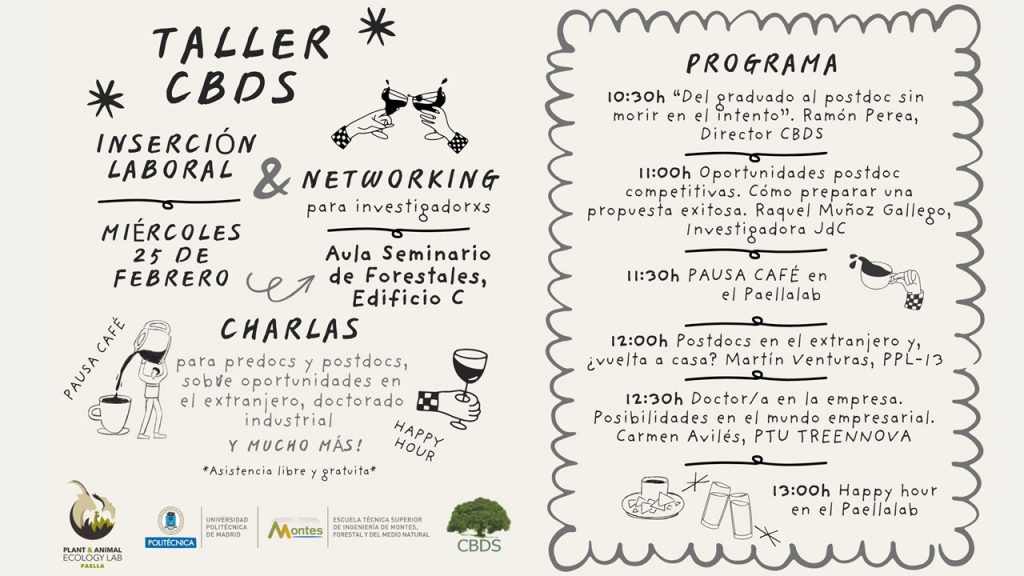 TALLER
CBDS
INSERCIÓN
LABORAL
&
NETWORKING
para investigadorxs
MIÉRCOLES
25 DE
FEBRERO
Aula Seminario
de Forestales,
Edificio C
CHARLAS
para predocs y postdocs,
sobre oportunidades en
el extranjero, doctorado
industrial
Y MUCHO MÁS!
*Asistencia libre y gratuita*
PAUSA CAFÉ
HAPPY
HOUR
PLANT & ANIMAL
ECOLOGY LAB
PAELLA
POLITÉCNICA
UNIVERSIDAD
POLITÉCNICA
DE MADRID
Montes
ESCUELA TÉCNICA SUPERIOR
DE INGENIERÍA DE MONTES,
FORESTAL Y DEL MEDIO NATURAL
CBDS
PROGRAMA
10:30h “Del graduado al postdoc sin
morir en el intento”. Ramón Perea,
Director CBDS
11:00h Oportunidades postdoc
competitivas. Cómo preparar una
propuesta exitosa. Raquel Muñoz Gallego,
Investigadora JdC
11:30h PAUSA CAFÉ en
el Paellalab
12:00h Postdocs en el extranjero y,
¿vuelta a casa? Martín Venturas, PPL-13
12:30h Doctor/a en la empresa.
Posibilidades en el mundo empresarial.
Carmen Avilés, PTU TREENNOVA
13:00h Happy hour
en el Paellalab